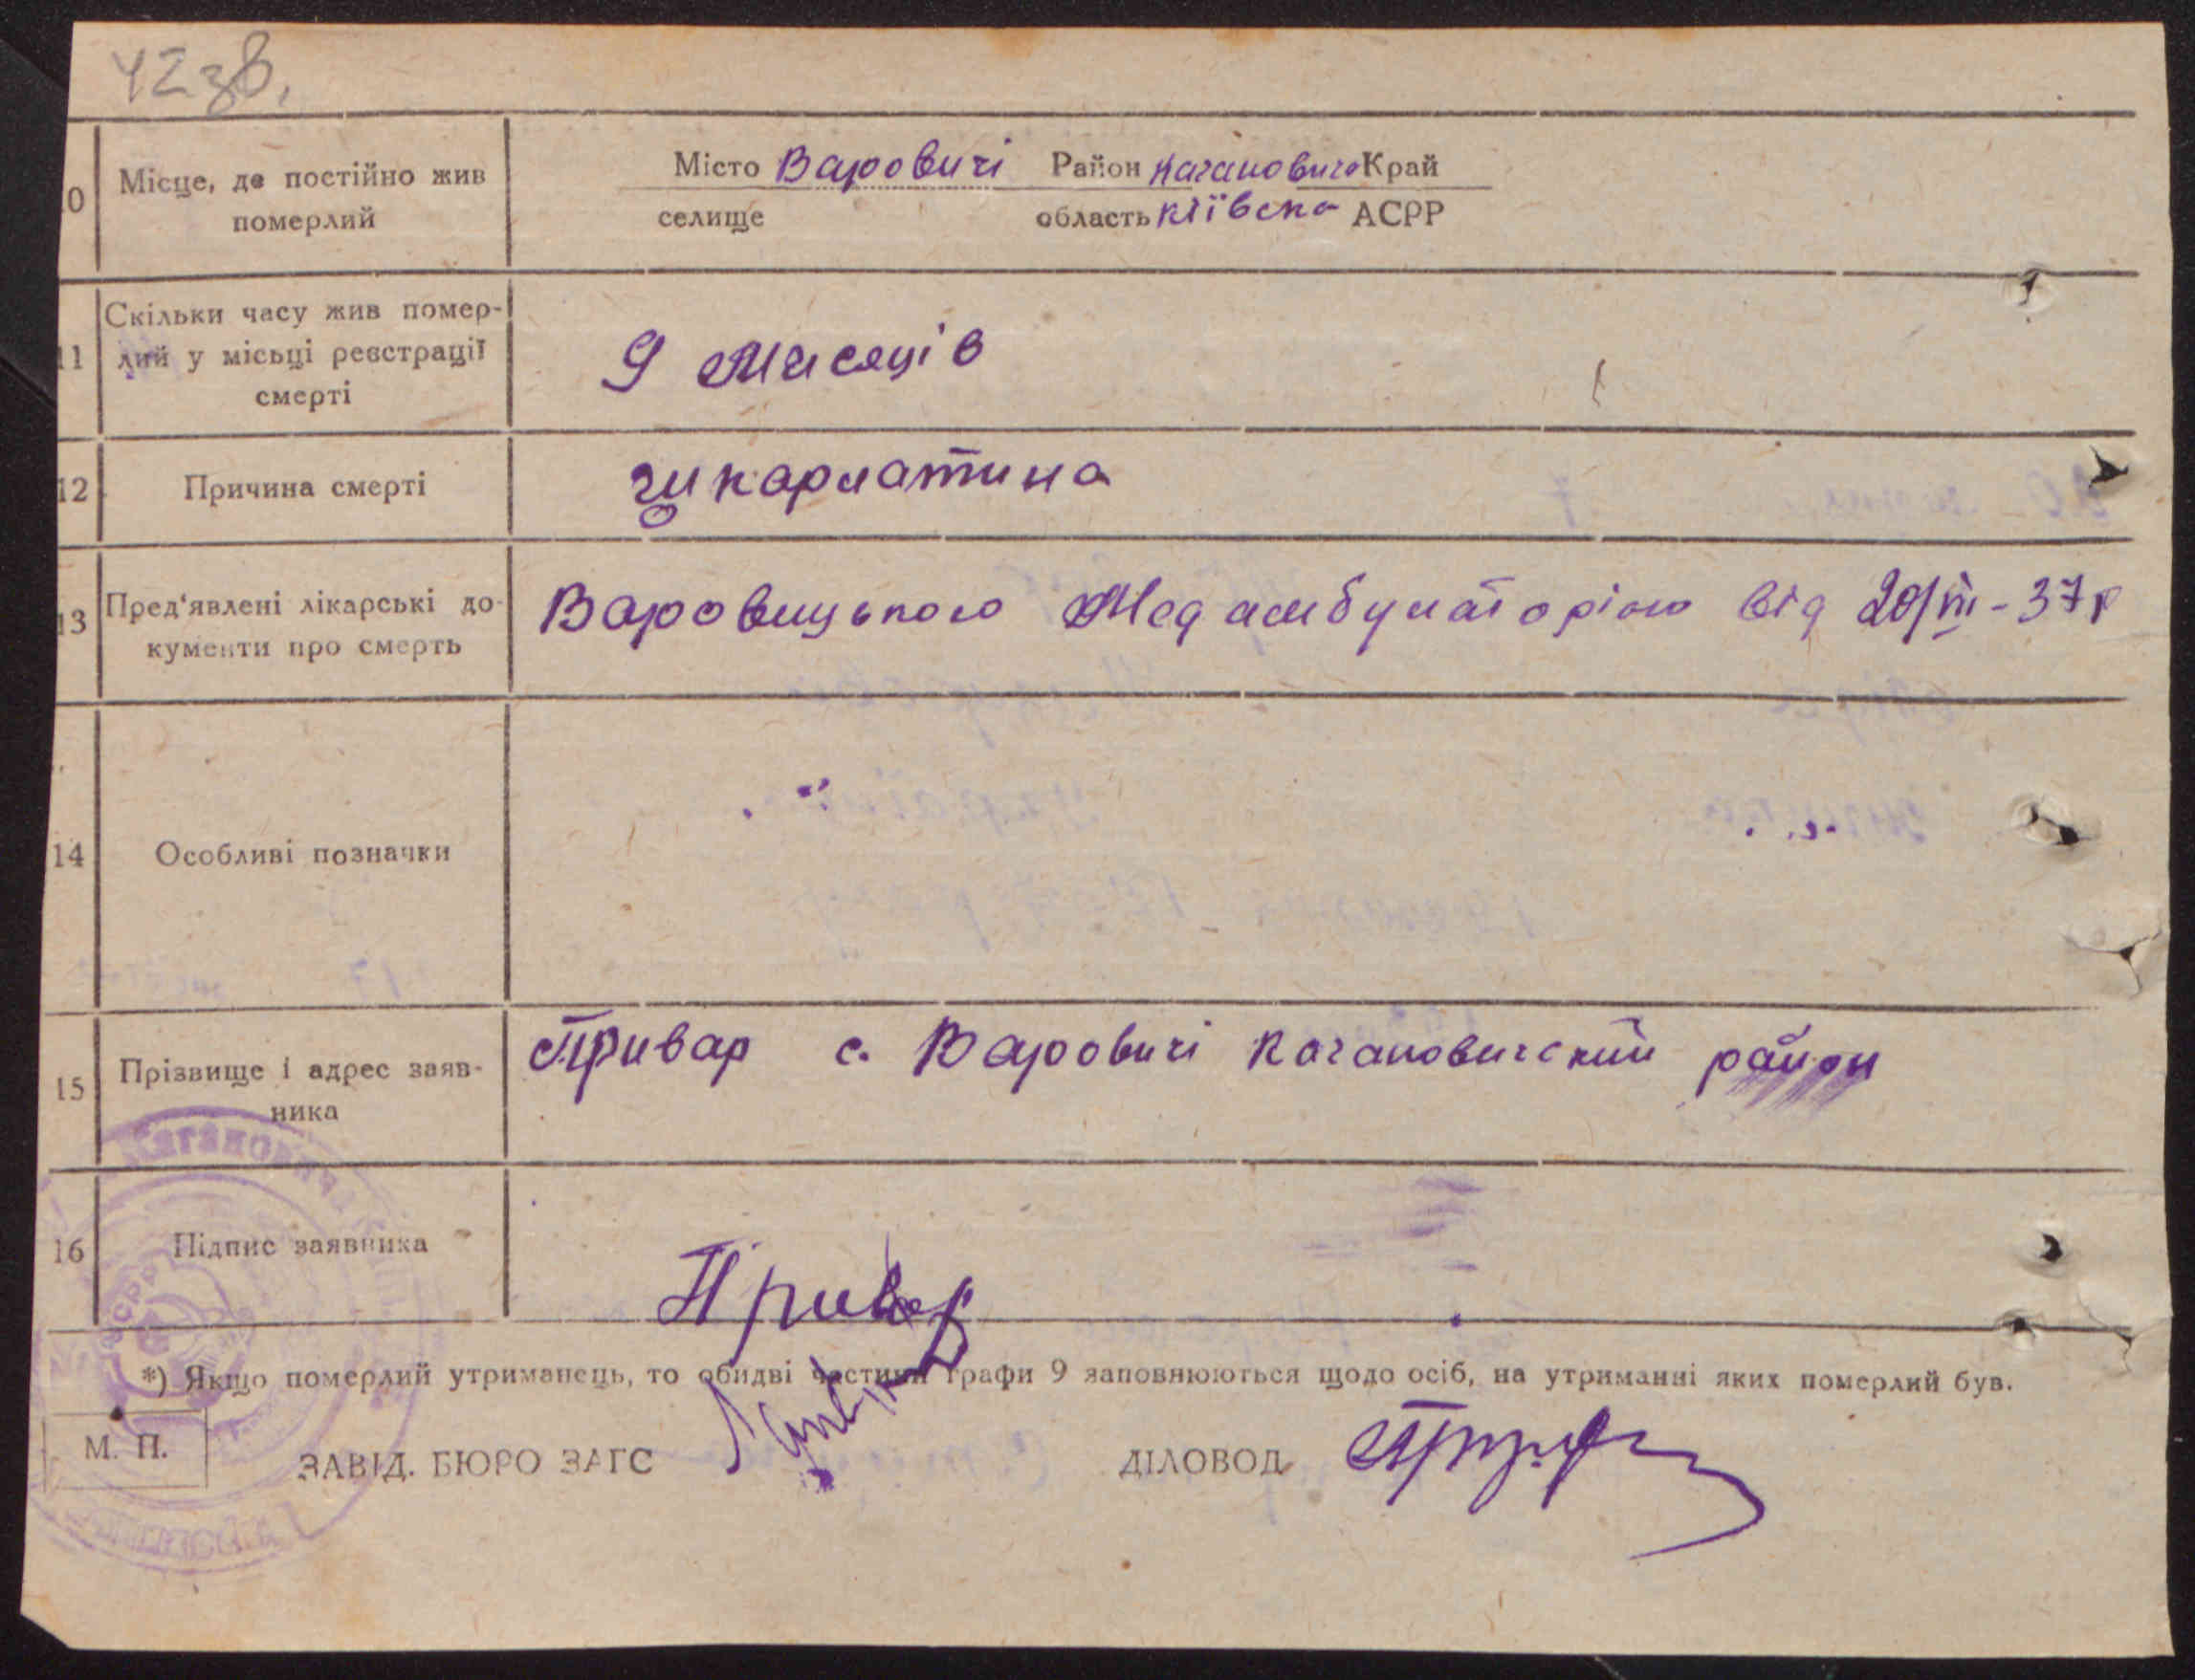 42зв.
0 Місце, де постійно жив померлий
Місто Варовичі Район Кагановича Край
селище область київска АСРР
11 Скільки часу жив помер-
лий у місьці реєстрації
смерті
9 Мисяців
12 Причина смерті
шкарлатина
13 Пред'явлені лікарські до-
кументи про смерть
Варовицькою Мед амбулаторією від 20/III-37р
14 Особливі позначки
15 Прізвище і адрес заяв-
ника
Привар с. Варовичі Кагановичский район
16 Підпис заявника
Привар
*) Якщо померлий утриманець, то обидві частини графи 9 заповнюються щодо осіб, на утриманні яких померлий був.
М. П.
ЗАВІД. БЮРО ЗАГС ДІЛОВОД